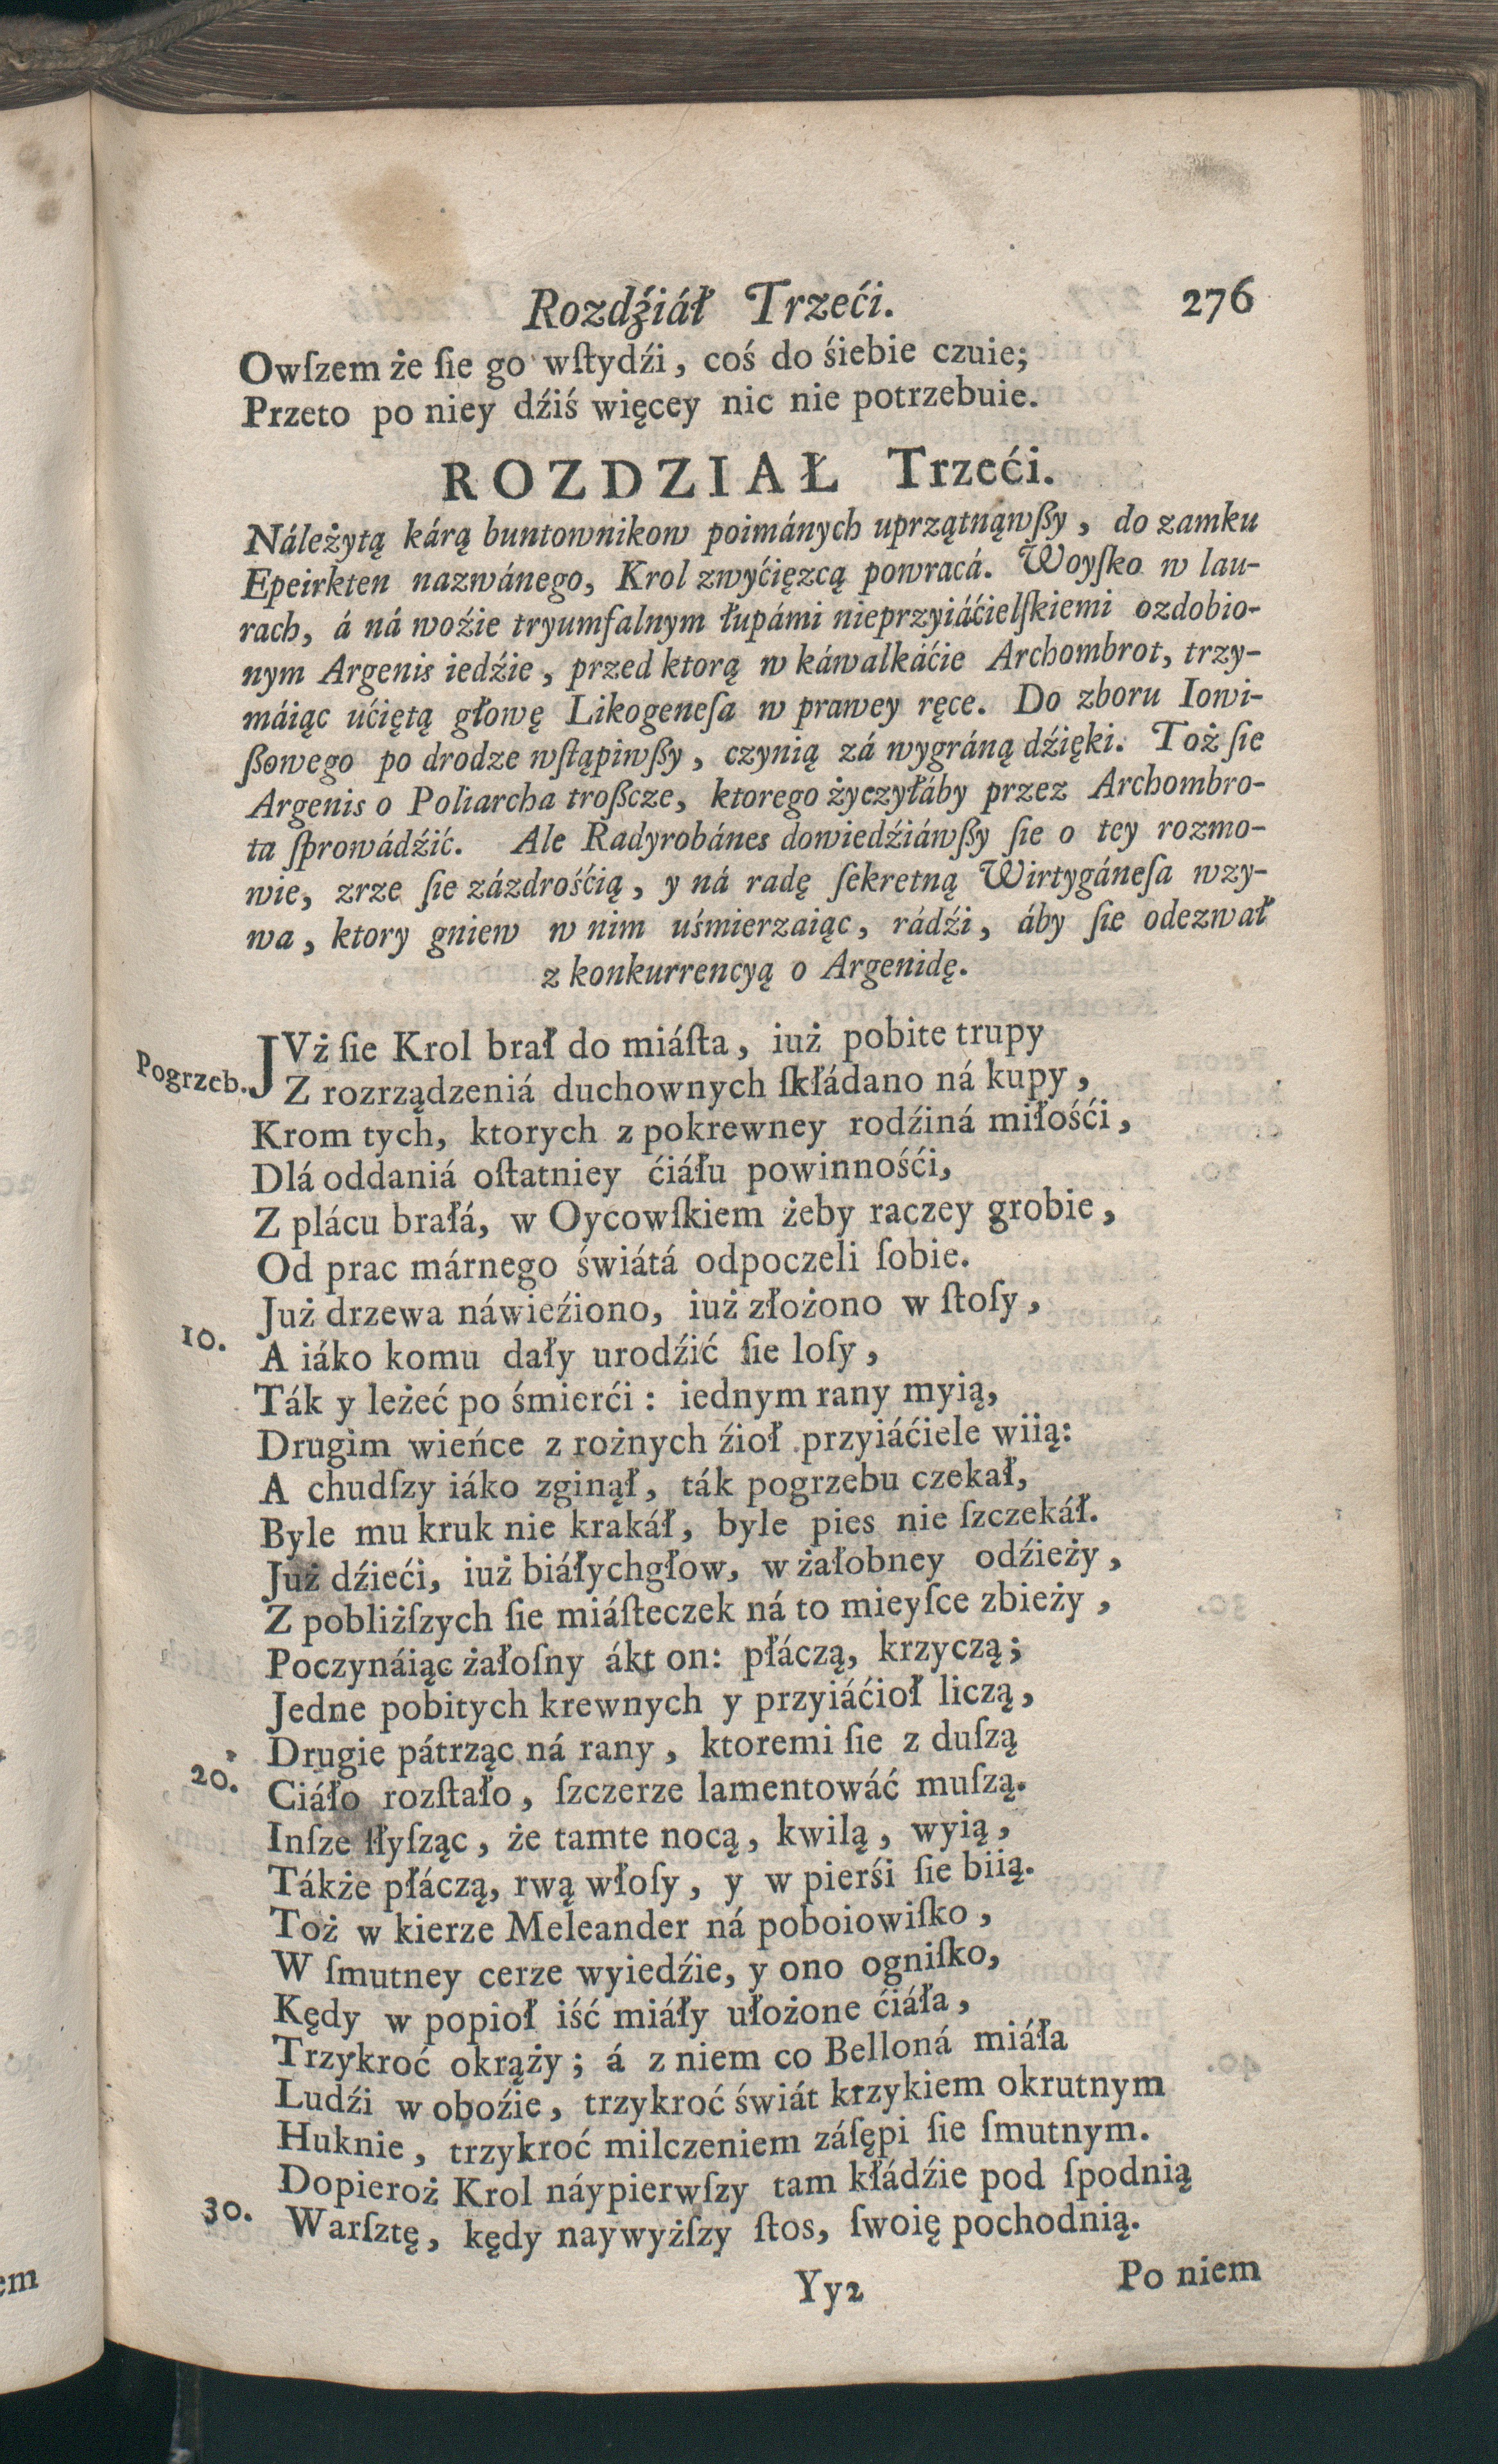 Rozdźiáł Trzeći. 276
Owſzem że ſie go wſtydźi, coś do śiebie czuie;
Przeto po niey dźiś więcey nic nie potrzebuie.
ROZDZIAŁ Trzeći.
Náleżytą kárą buntownikow poimánych uprzątnąwßy, do zamku
Epeirkten nazwánego, Krol zwyćięzcą powracá. Woyſko w lau-
rach, á ná woźie tryumfalnym łupámi nieprzyiáćielſkiemi ozdobio-
nym Argenis iedźie, przed ktorą w káwalkáćie Archombrot, trzy-
máiąc ućiętą głowę Likogeneſa w prawey ręce. Do zboru Iowi-
ßowego po drodze wſtąpiwßy, czynią zá wygráną dźięki. Toż ſie
Argenis o Poliarcha troßcze, ktorego życzyłáby przez Archombro-
ta ſprowádźić. Ale Radyrobánes dowiedźiáwßy ſie o tey rozmo-
wie, zrze ſie zázdrośćią, y ná radę ſekretną Wirtygáneſa wzy-
wa, ktory gniew w nim uśmierzaiąc, rádźi, áby ſie odezwał
z konkurrencyą o Argenidę.
Pogrzeb. JVż ſie Krol brał do miáſta, iuż pobite trupy
Z rozrządzeniá duchownych ſkłádano ná kupy,
Krom tych, ktorych z pokrewney rodźiná miłośći,
Dlá oddaniá oſtatniey ćiáłu powinnośći,
Z plácu brałá, w Oycowſkiem żeby raczey grobie,
Od prac márnego świátá odpoczeli ſobie.
Już drzewa náwieźiono, iuż złożono w ſtoſy,
10. A iáko komu dały urodźić ſie loſy,
Ták y leżeć po śmierći: iednym rany myią,
Drugim wieńce z rożnych źioł przyiáćiele wiią:
A chudſzy iáko zginął, ták pogrzebu czekał,
Byle mu kruk nie krakáł, byle pies nie ſzczekáł.
Już dźieći, iuż biáłychgłow, w żałobney odźieży,
Z pobliżſzych ſie miáſteczek ná to mieyſce zbieży,
Poczynáiąc żałoſny ákt on: płáczą, krzyczą;
Jedne pobitych krewnych y przyiáćioł liczą,
Drugie pátrząc ná rany, ktoremi ſie z duſzą
20. Ciáło rozſtało, ſzczerze lamentowáć muſzą.
Inſze ſłyſząc, że tamte nocą, kwilą, wyią,
Tákże płáczą, rwą włoſy, y w pierśi ſie biią.
Toż w kierze Meleander ná poboiowiſko,
W ſmutney cerze wyiedźie, y ono ogniſko,
Kędy w popioł iść miáły ułożone ćiáła,
Trzykroć okrąży; á z niem co Belloná miáła
Ludźi w oboźie, trzykroć świát krzykiem okrutnym
Huknie, trzykroć milczeniem záſępi ſie ſmutnym.
Dopieroż Krol náypierwſzy tam kłádźie pod ſpodnią
30. Warſztę, kędy naywyżſzy ſtos, ſwoię pochodnią.
Yy2 Po niem